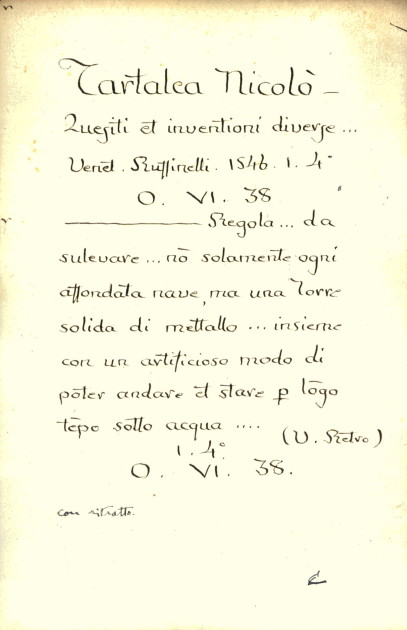 Tartalea Nicolò —
Quesiti et inventioni diverse ...
Venet. Ruffinelli. 1546. 1. 4°
O. VI. 38
——— Regola ... da
sulevare ... nō solamente ogni
affondata nave, ma una Torre
solida di mettallo ... insieme
con un artificioso modo di
pōter andare et stare p lōgo
tēpo sotto acqua ....
(V. Retro)
1. 4°
O. VI. 38.
con ritratto.